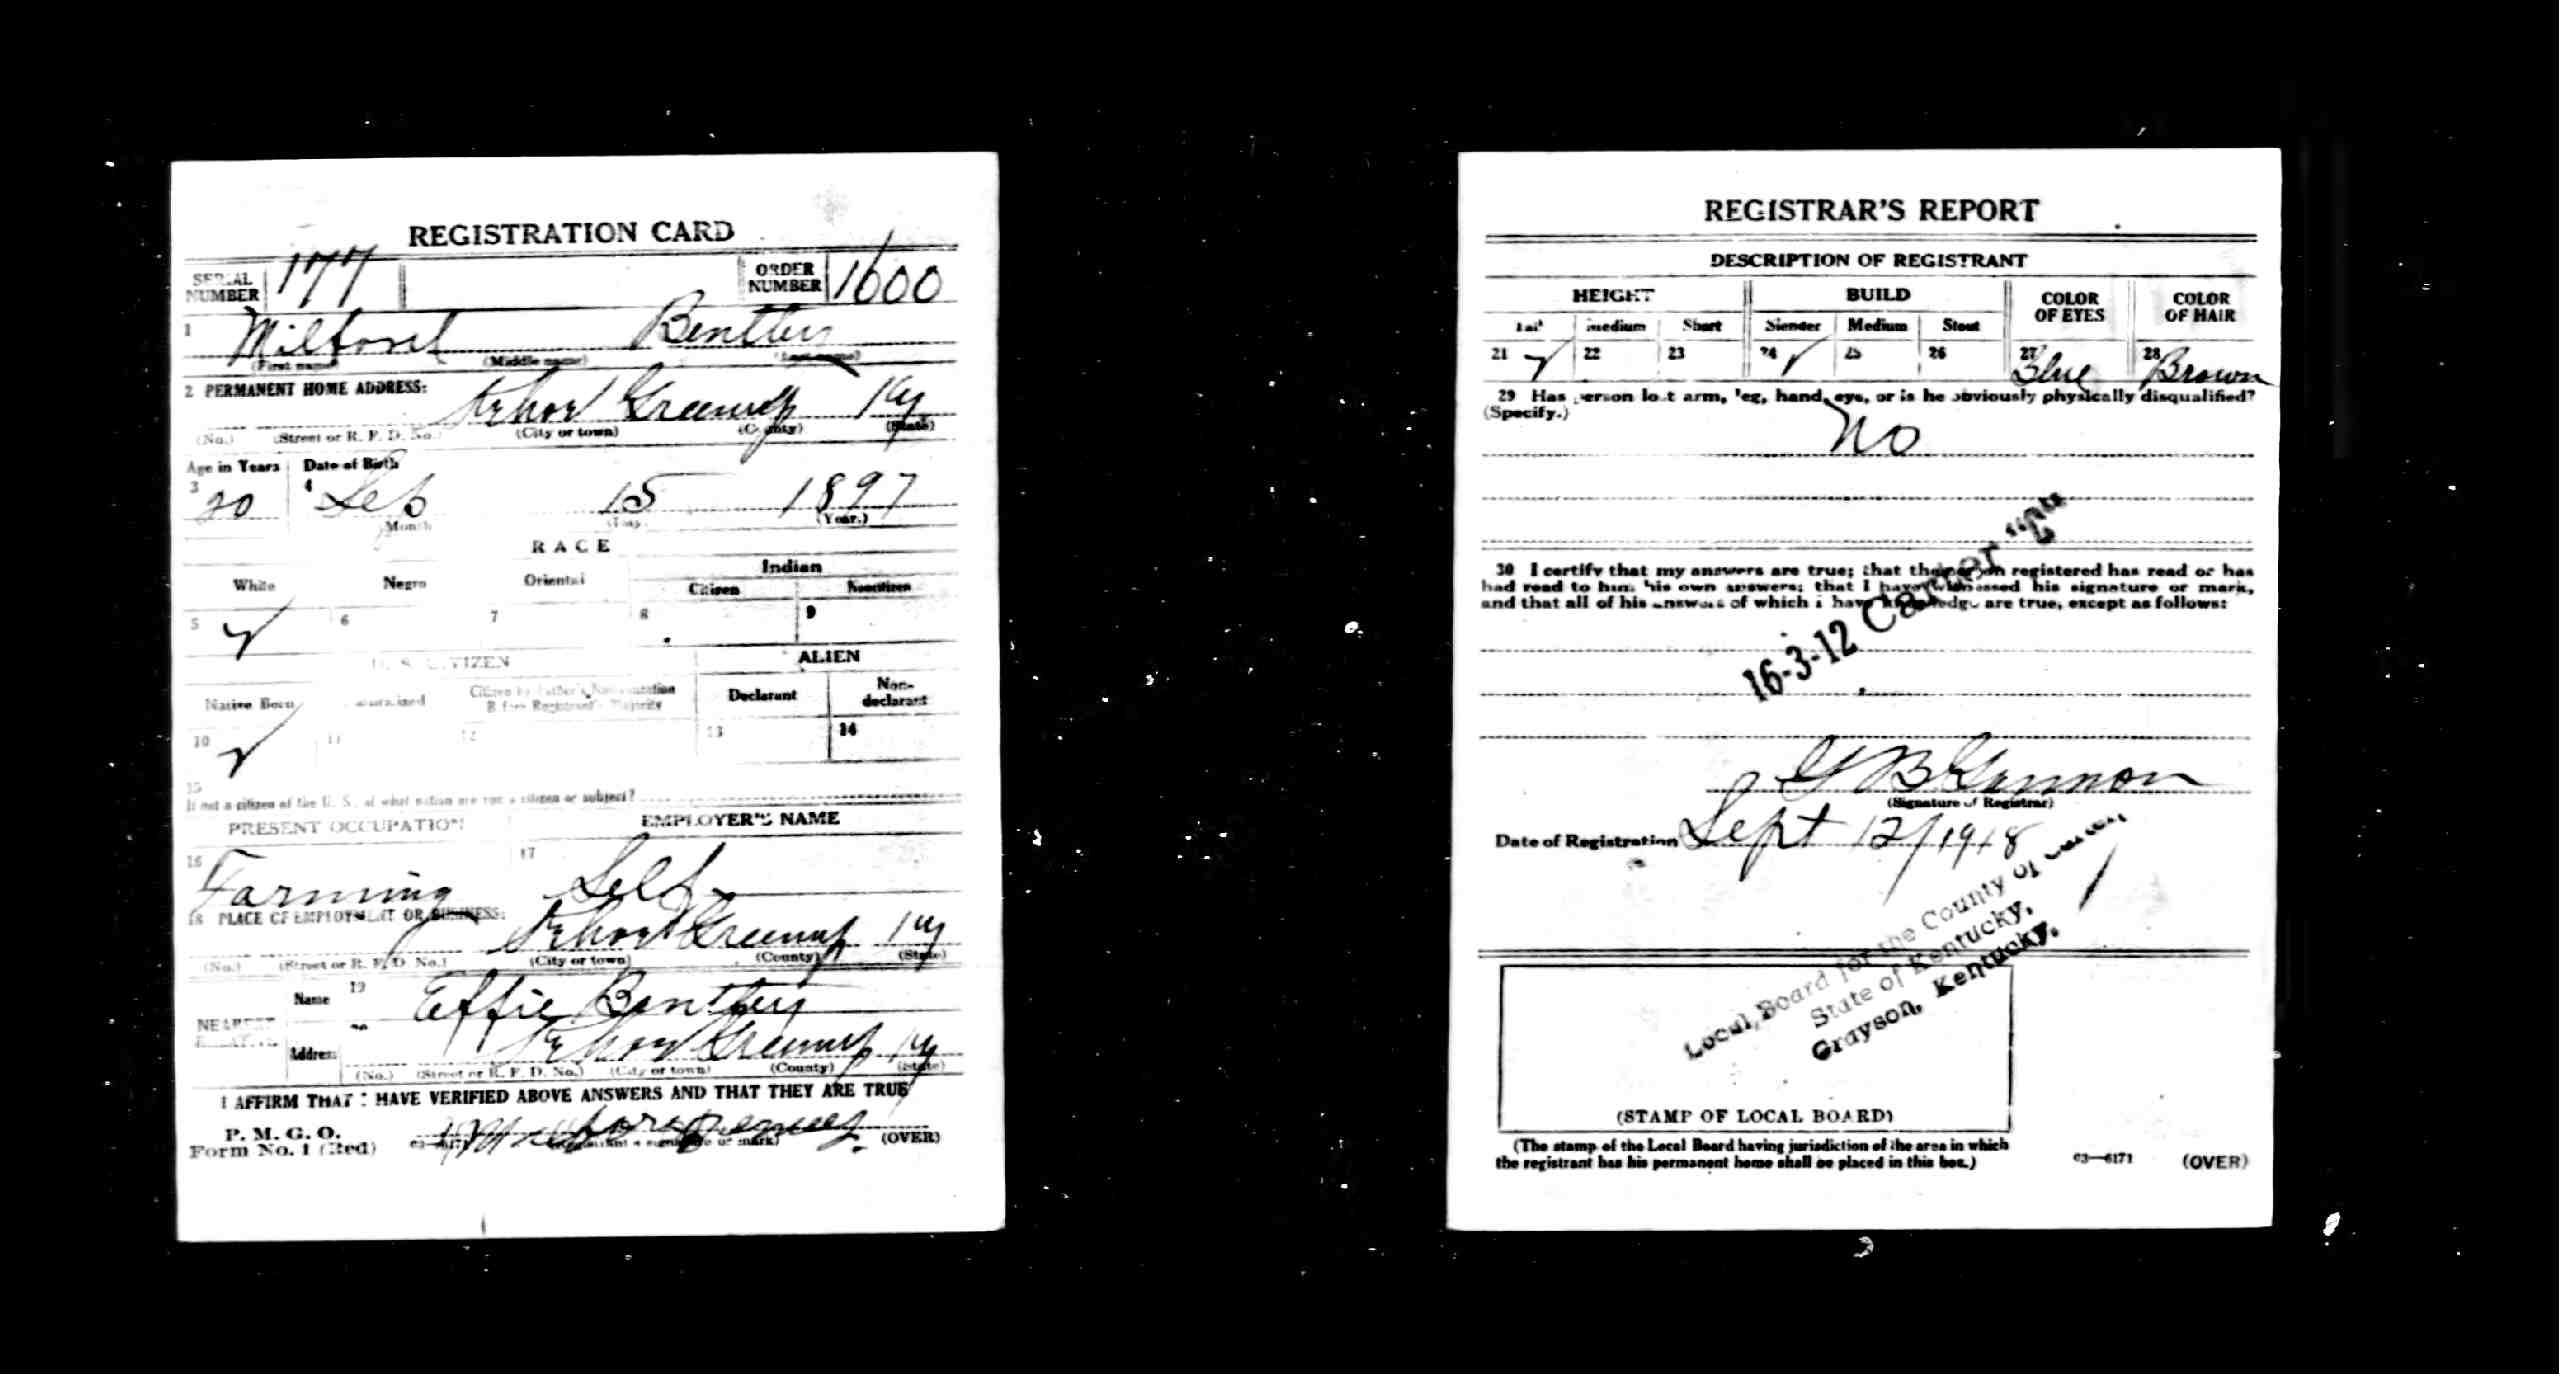 REGISTRATION CARD
SERIAL NUMBER 177 ORDER NUMBER 1600
1 Milford Bentley
(First name) (Middle name) (Last name)
2 PERMANENT HOME ADDRESS:
Greenup Ky
(No.) (Street or R. F. D. No.) (City or town) (County) (State)
Age in Years Date of Birth
3 20 4 Sep 15 1897
(Month) (Day.) (Year.)
RACE
White Negro Oriental Indian
Citizen Noncitizen
5 6 7 8 9
U. S. CITIZEN ALIEN
Native Born Naturalized Citizen by Father's Naturalization Before Registrant's Majority Declarant Non-declarant
10 11 12 13 14
15
If not a citizen of the U. S., of what nation are you a citizen or subject?
PRESENT OCCUPATION EMPLOYER'S NAME
16 Farming 17 Self
18 PLACE OF EMPLOYMENT OR BUSINESS:
Greenup Ky
(No.) (Street or R. F. D. No.) (City or town) (County) (State)
NEAREST RELATIVE Name 19 Effie Bentley
Address 20 Greenup Ky
(No.) (Street or R. F. D. No.) (City or town) (County) (State)
I AFFIRM THAT I HAVE VERIFIED ABOVE ANSWERS AND THAT THEY ARE TRUE
P. M. G. O.
Form No. 1 (Red) 03—6171 (Registrant's signature or mark) (OVER)
REGISTRAR'S REPORT
DESCRIPTION OF REGISTRANT
HEIGHT BUILD COLOR OF EYES COLOR OF HAIR
Tall Medium Short Slender Medium Stout
21 22 23 24 25 26 27 Blue 28 Brown
29 Has person lost arm, leg, hand, eye, or is he obviously physically disqualified?
(Specify.)
No
30 I certify that my answers are true; that the person registered has read or has
had read to him his own answers; that I have witnessed his signature or mark,
and that all of his answers of which I have knowledge are true, except as follows:
16-3-12 Carter
G B Gannon
(Signature of Registrar)
Date of Registration Sept 12/1918
Local Board for the County of Carter
State of Kentucky,
Grayson, Kentucky.
(STAMP OF LOCAL BOARD)
(The stamp of the Local Board having jurisdiction of the area in which
the registrant has his permanent home shall be placed in this box.)
03—6171 (OVER)